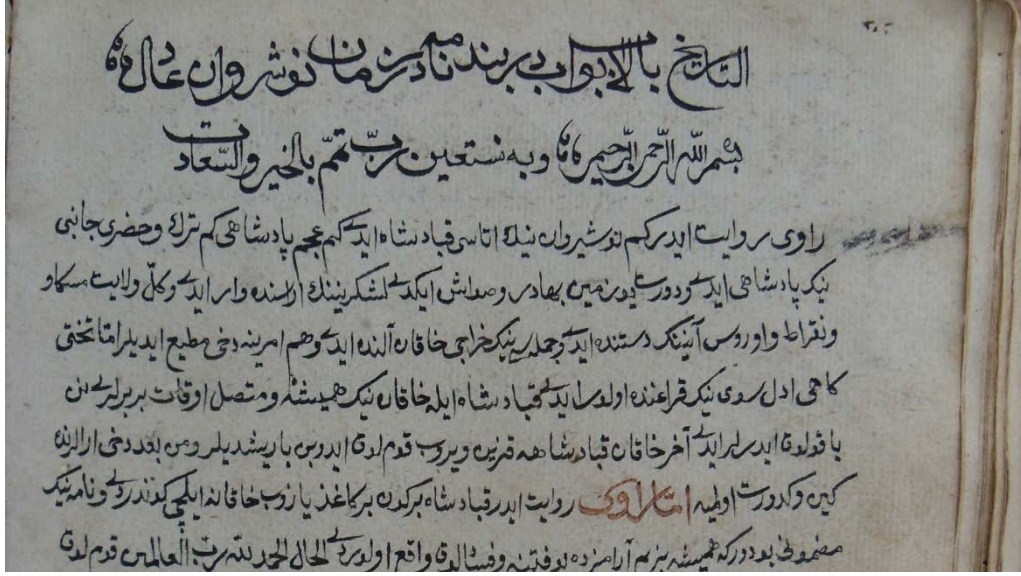 التاريخ باب الابواب دربند نامه در زمان نوشروان عادل
بسم الله الرحمن الرحيم وبه نستعين رب تمم بالخير والسعادت
راوى روايت ايدركم نوشيروان نينك اتاسى قباد شاه ايدى كم عجم پادشاهى كم ترك وحضرى جانبى
نيك پادشاهى ايدى ودورت يوز مين بهادر وصواش ايكدى لشكرينينك اراسنده وار ايدى وكل ولايت مسكاو
ونقراط واوروس آنينك دستنده ايدى وجمله سى نيك خراجى خاقان آلنده ايدى وهم امرينه دخى مطيع ايديلر اما تختى
كاهى ادل سوى نيك قراغنده اولور ايدى قباد شاه ايله خاقان نيك هميشه ومتصل اوقات بربرلرى بن
ياقولوق ايدرلر ايدى آخر خاقان قباد شاهه قزين ويروب قوم لوق ايدوبن باريشديلر ومن بعد دخى ارالرنده
كين وكدورت اولميه اما راوى روايت ايدر قباد شاه بركون بر كاغذ يازوب خاقانه ايلچى كوندردى ونامه نيك
مضمونى بودوركه هميشه بزيم آرامزده بو فتنه وفسالوق واقع اولوردى الحال الحمد لله رب العالمين قوم لوق